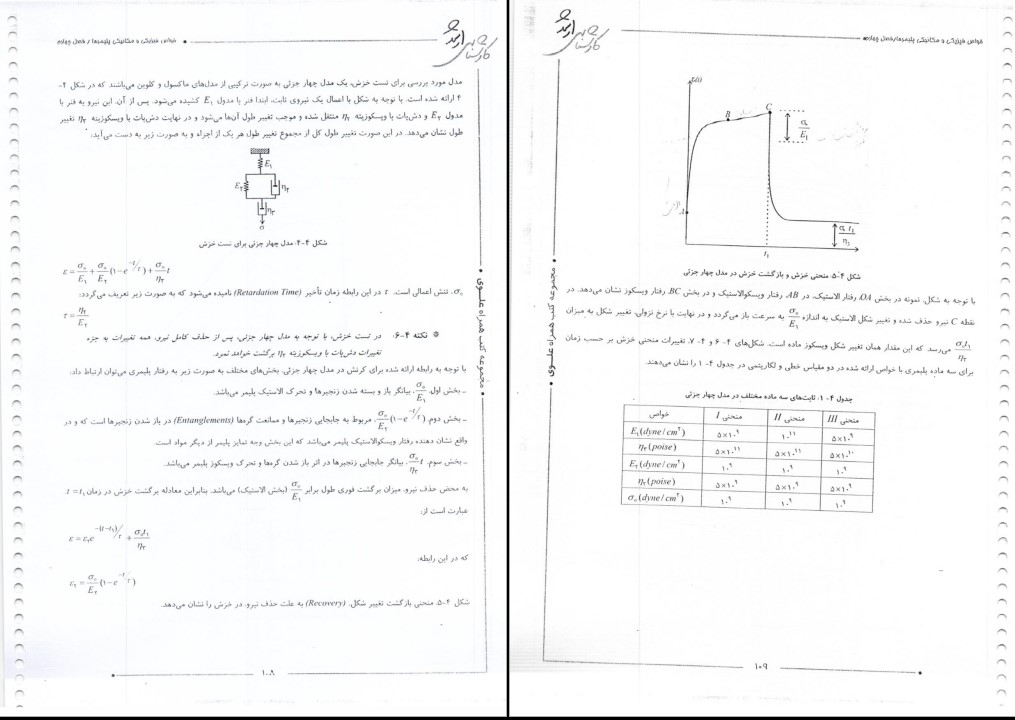 خواص فیزیکی و مکانیکی پلیمرها / فصل چهارم
مدل مورد بررسی برای تست خزش، یک مدل چهار جزئی به صورت ترکیبی از مدل‌های ماکسول و کلوین می‌باشند که در شکل ۴-
۴ ارائه شده است. با توجه به شکل با اعمال یک نیروی ثابت، ابتدا فنر با مدول E₁ کشیده می‌شود. پس از آن، این نیرو به فنر با
مدول E₂ و دش‌پات با ویسکوزیته η₂ منتقل شده و موجب تغییر طول آن‌ها می‌شود و در نهایت دش‌پات با ویسکوزیته η₃ تغییر
طول نشان می‌دهد. در این صورت تغییر طول کل از مجموع تغییر طول هر یک از اجزاء و به صورت زیر به دست می‌آید:
E₁
E₂ η₂
η₃
σ
شکل ۴-۴. مدل چهار جزئی برای تست خزش
ε = σ₀/E₁ + σ₀/E₂ (۱-e^(-t/τ)) + σ₀/η₃ t
σ₀، تنش اعمالی است. τ در این رابطه زمان تأخیر (Retardation Time) نامیده می‌شود که به صورت زیر تعریف می‌گردد:
τ = η₂/E₂
نکته ۴-۶. در تست خزش، با توجه به مدل چهار جزئی، پس از حذف کامل نیرو، همه تغییرات به جزء
تغییرات دش‌پات با ویسکوزیته η₃ برگشت خواهد نمود.
با توجه به رابطه ارائه شده برای کرنش در مدل چهار جزئی، بخش‌های مختلف به صورت زیر به رفتار پلیمری می‌توان ارتباط داد:
ـ بخش اول، σ₀/E₁، بیانگر باز و بسته شدن زنجیرها و تحرک الاستیک پلیمر می‌باشد.
ـ بخش دوم، σ₀/E₂ (۱-e^(-t/τ))، مربوط به جابجایی زنجیرها و ممانعت گره‌ها (Entanglements) در باز شدن زنجیرها است که و در
واقع نشان دهنده رفتار ویسکوالاستیک پلیمر می‌باشد که این بخش وجه تمایز پلیمر از دیگر مواد است
ـ بخش سوم، σ₀/η₃ t، بیانگر جابجایی زنجیرها در اثر باز شدن گره‌ها و تحرک ویسکوز پلیمر می‌باشد.
به محض حذف نیرو، میزان برگشت فوری طول برابر σ₀/E₁ (بخش الاستیک) می‌باشد. بنابراین معادله برگشت خزش در زمان t = t₁
عبارت است از:
ε = ε₂e^(-(t-t₁)/τ) + σ₀t₁/η₃
که در این رابطه:
ε₂ = σ₀/E₂ (۱-e^(-t/τ))
شکل ۴-۵، منحنی بازگشت تغییر شکل، (Recovery) به علت حذف نیرو، در خزش را نشان می‌دهد.
مجموعه کتب همراه علـــوی
۱۰۸
خواص فیزیکی و مکانیکی پلیمرها/فصل چهارم
ε(t)
A
B
C
σ₀/E₁
σ₀ t₁/η₃
t₁
شکل ۴-۵. منحنی خزش و بازگشت خزش در مدل چهار جزئی
با توجه به شکل، نمونه در بخش OA، رفتار الاستیک، در AB، رفتار ویسکوالاستیک و در BC، رفتار ویسکوز نشان می‌دهد. در
نقطه C نیرو حذف شده و تغییر شکل الاستیک به اندازه σ₀/E₁ به سرعت باز می‌گردد و در نهایت با نرخ نزولی، تغییر شکل به میزان
σ₀t₁/η₃ می‌رسد که این مقدار همان تغییر شکل ویسکوز ماده است. شکل‌های ۴-۶ و ۴-۷، تغییرات منحنی خزش بر حسب زمان
برای سه ماده پلیمری با خواص ارائه شده در دو مقیاس خطی و لگاریتمی در جدول ۴-۱ را نشان می‌دهند.
جدول ۴-۱. ثابت‌های سه ماده مختلف در مدل چهار جزئی
خواص منحنی I منحنی II منحنی III
E₁(dyne/cm²) ۵×۱۰⁹ ۱۰¹¹ ۵×۱۰⁹
η₃(poise) ۵×۱۰¹¹ ۵×۱۰¹¹ ۵×۱۰¹⁰
E₂(dyne/cm²) ۱۰⁹ ۱۰⁹ ۱۰⁹
η₂(poise) ۵×۱۰⁹ ۵×۱۰⁹ ۵×۱۰⁹
σ₀(dyne/cm²) ۱۰⁹ ۱۰⁹ ۱۰⁹
مجموعه کتب همراه علـــوی
۱۰۹